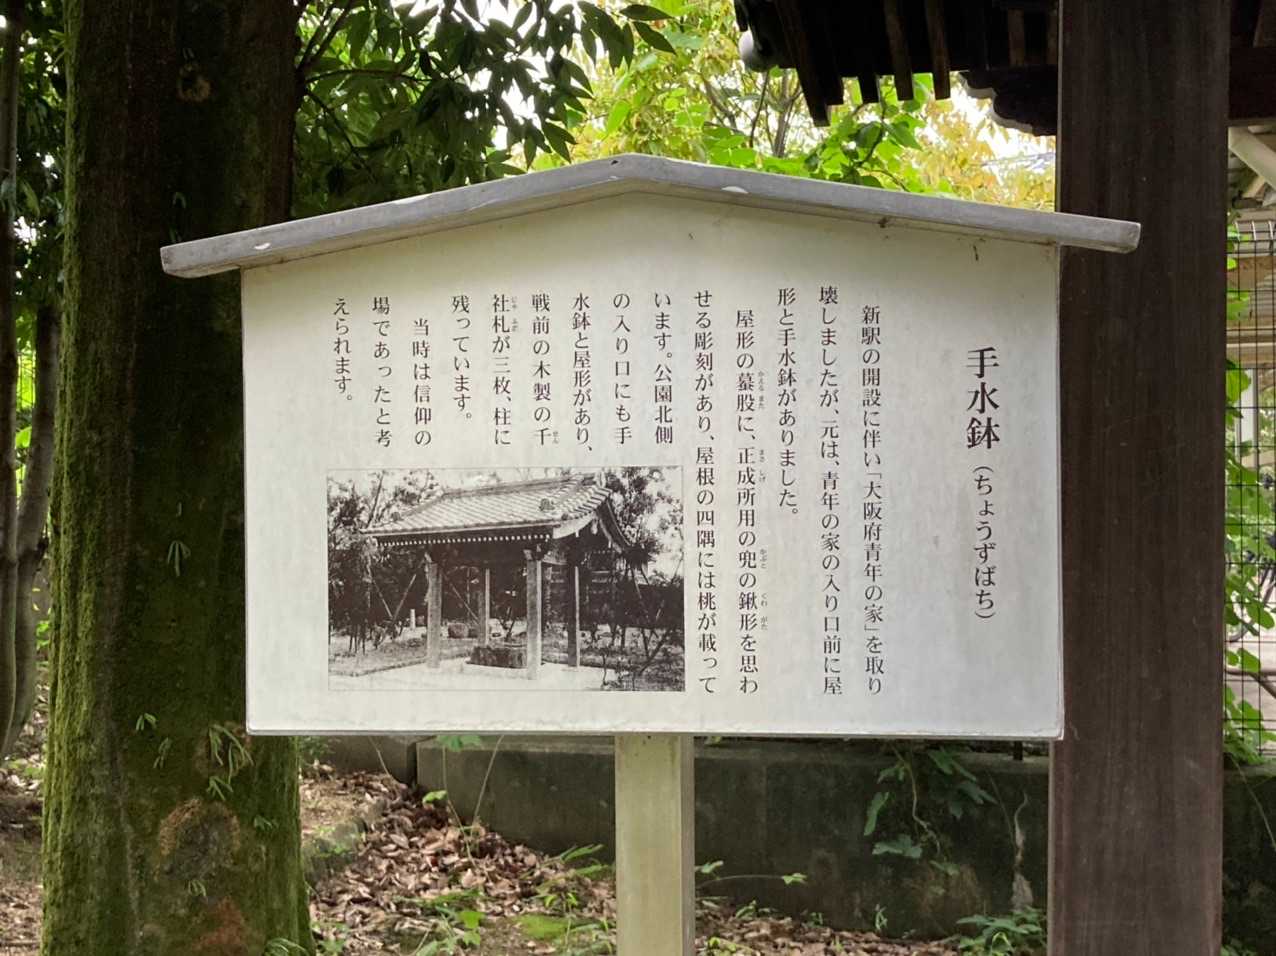 手水鉢（ちょうずばち）
新駅の開設に伴い「大阪府青年の家」を取り
壊しましたが、元は、青年の家の入り口前に屋
形と手水鉢がありました。
屋形の蟇股に、正成所用の兜の鍬形を思わ
せる彫刻があり、屋根の四隅には桃が載って
います。公園北側
の入り口にも手
水鉢と屋形があり、
戦前の木製の千
社札が三枚、柱に
残っています。
当時は信仰の
場であったと考
えられます。